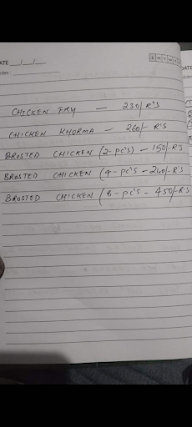 DATE
CHICKEN FRY — 230/ R'S
CHICKEN KHORMA — 260/- R'S
BROSTED CHICKEN (2-PC'S) - 150/- R'S
BROSTED CHICKEN (4-PC'S - 240/-R'S
BROSTED CHICKEN (8-PC'S - 450/-R'S